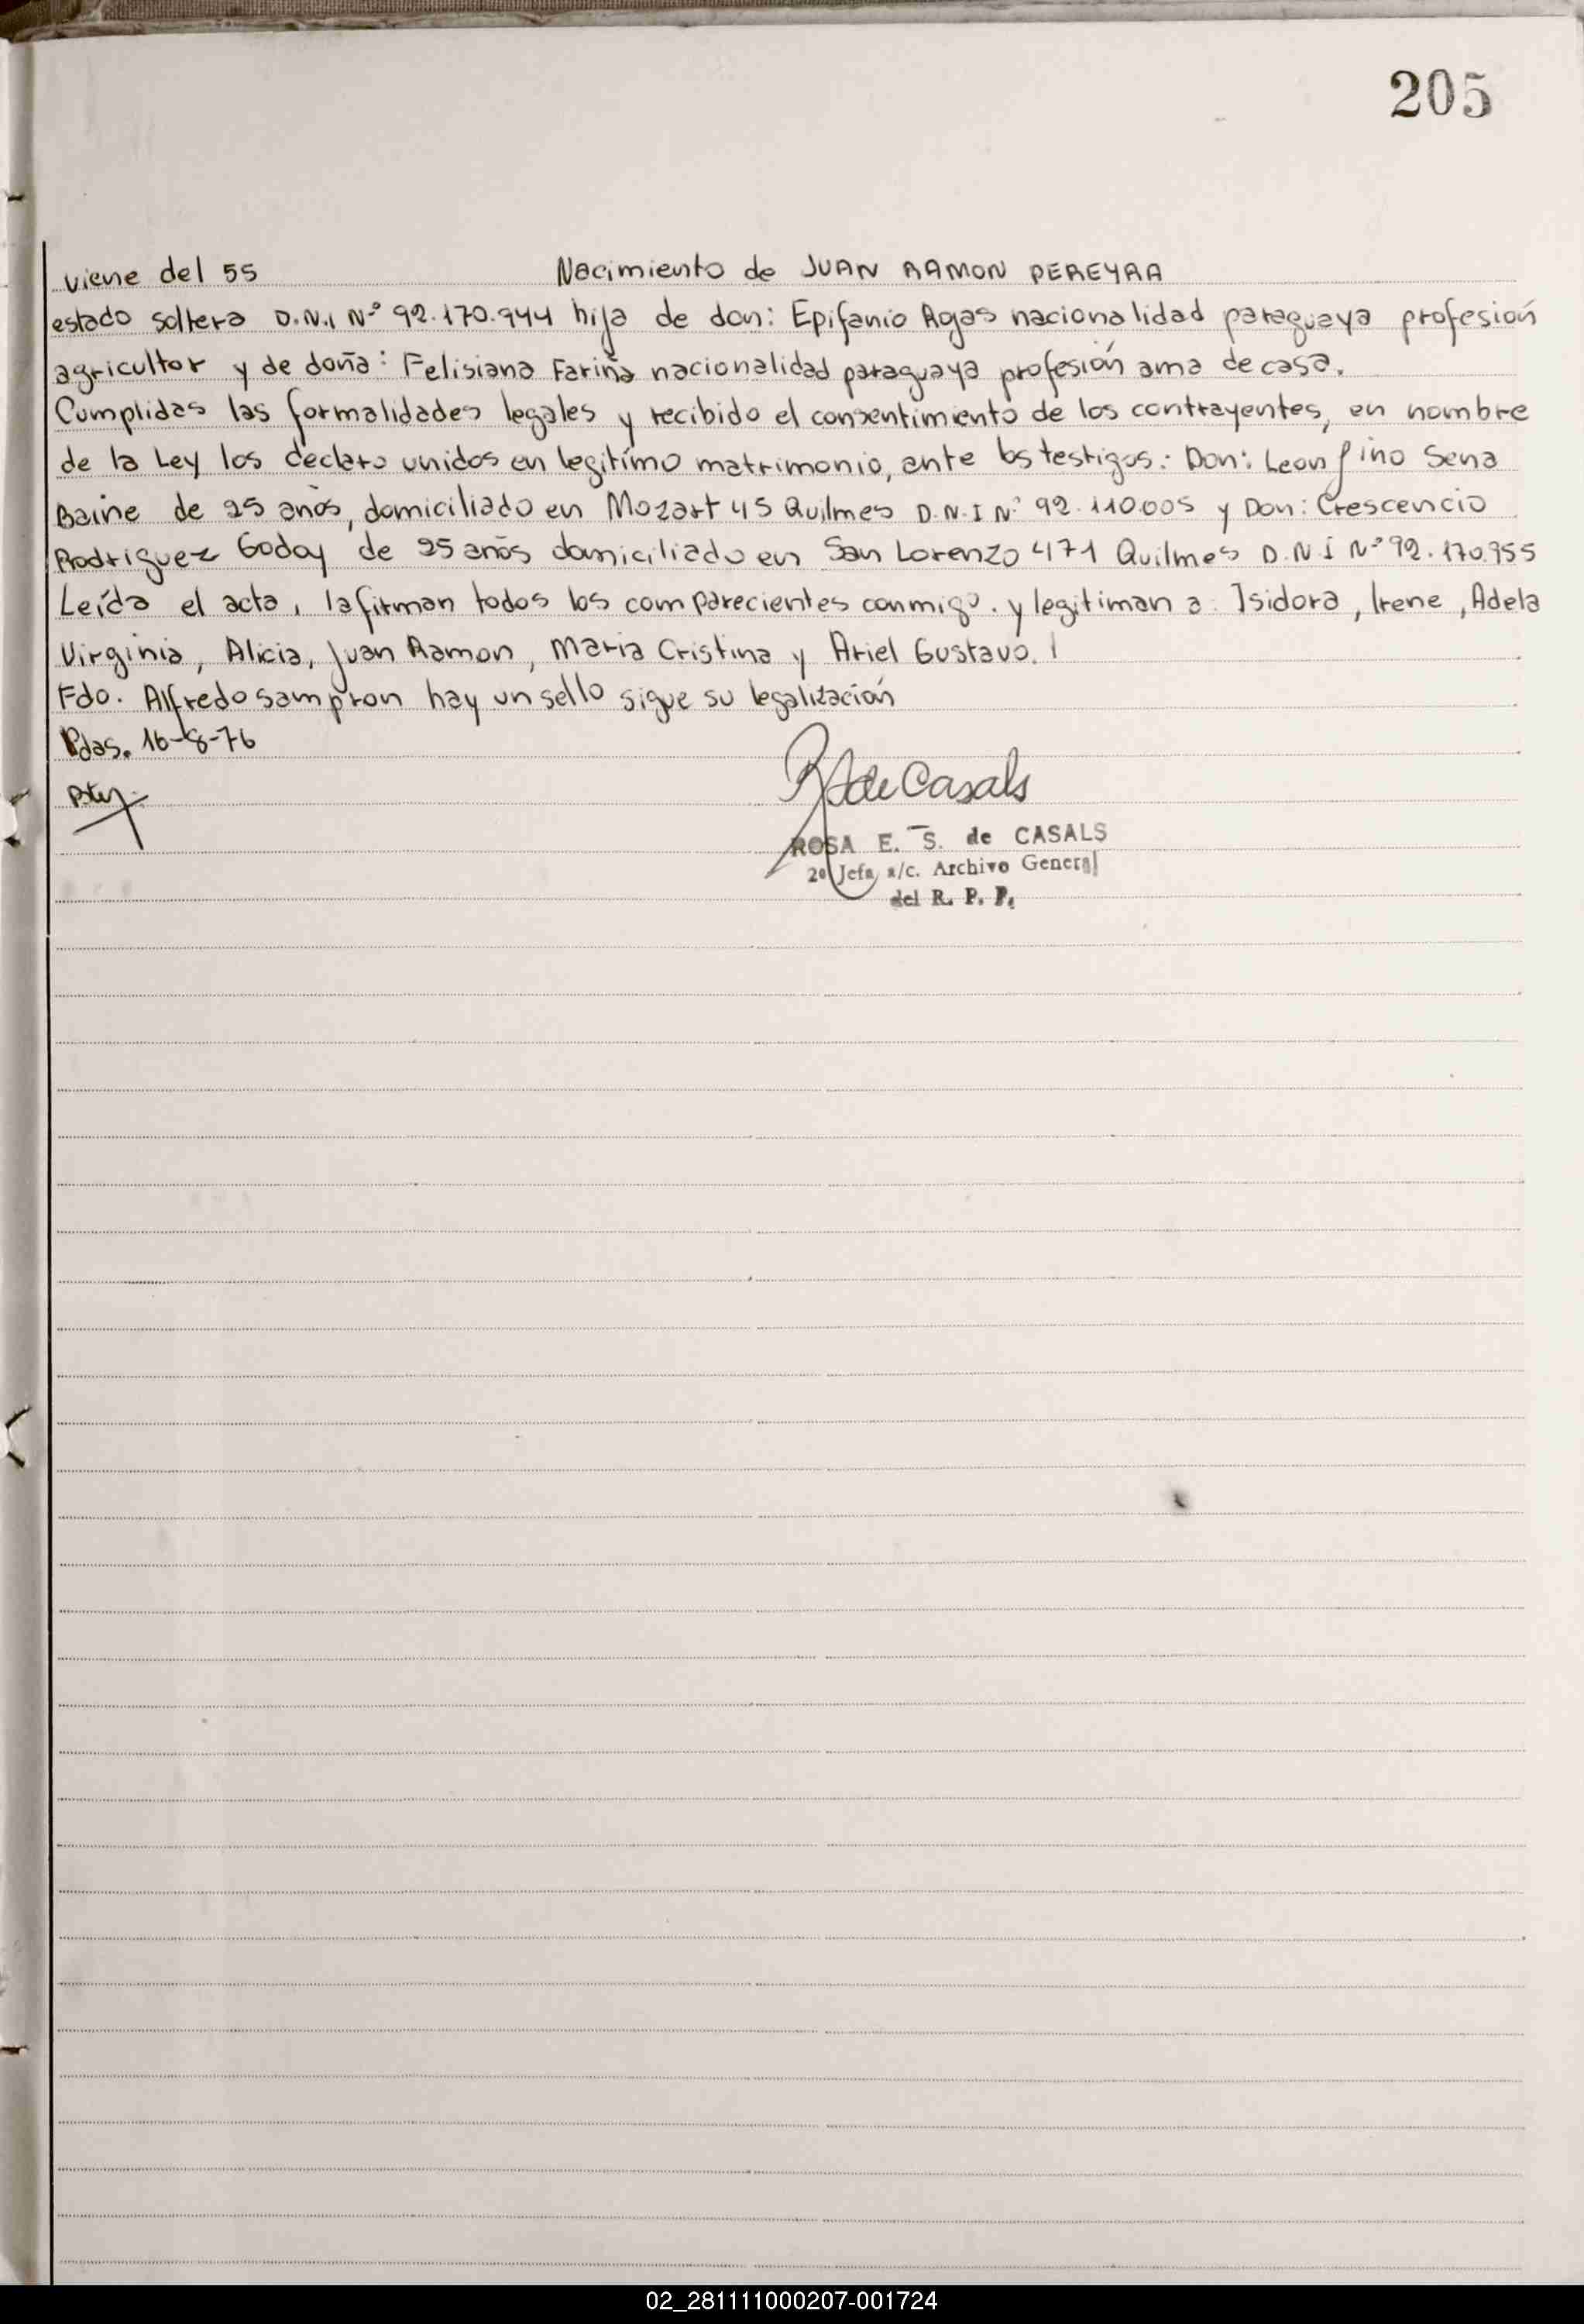 205
viene del 55 Nacimiento de JUAN RAMON PEREYRA
estado soltera D.N.I Nº 92.170.944 hija de don: Epifanio Rojas nacionalidad paraguaya profesión
agricultor y de doña: Felisiana Fariña nacionalidad paraguaya profesión ama de casa.
Cumplidas las formalidades legales y recibido el consentimiento de los contrayentes, en nombre
de la Ley los declaro unidos en legítimo matrimonio, ante los testigos: Don: Leonfino Sena
de 25 anõs, domiciliado en Mozart 45 Quilmes D.N.I Nº 92.110.005 y Don: Crescencio
Rodriguez Godoy de 25 anõs domiciliado en San Lorenzo 471 Quilmes D.N.I Nº 92.170.955
Leída el acta, la firman todos los comparecientes conmigo. y legitiman a: Isidora, Irene, Adela
Virginia, Alicia, Juan Ramon, Maria Cristina y Ariel Gustavo.
Fdo. Alfredo Sampron hay un sello sigue su legalización
Pdas. 16-8-76
R de Casals
ROSA E. S. de CASALS
2º Jefa a/c. Archivo General
del R. P. P.
02_281111000207-001724